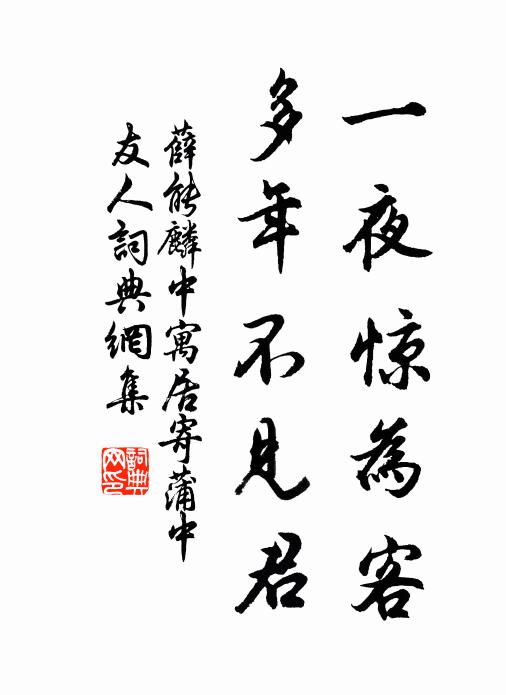 一夜惊為客
多年不見君
薛能麟中寓居寄蒲中
友人詞典網集
詞典
网印